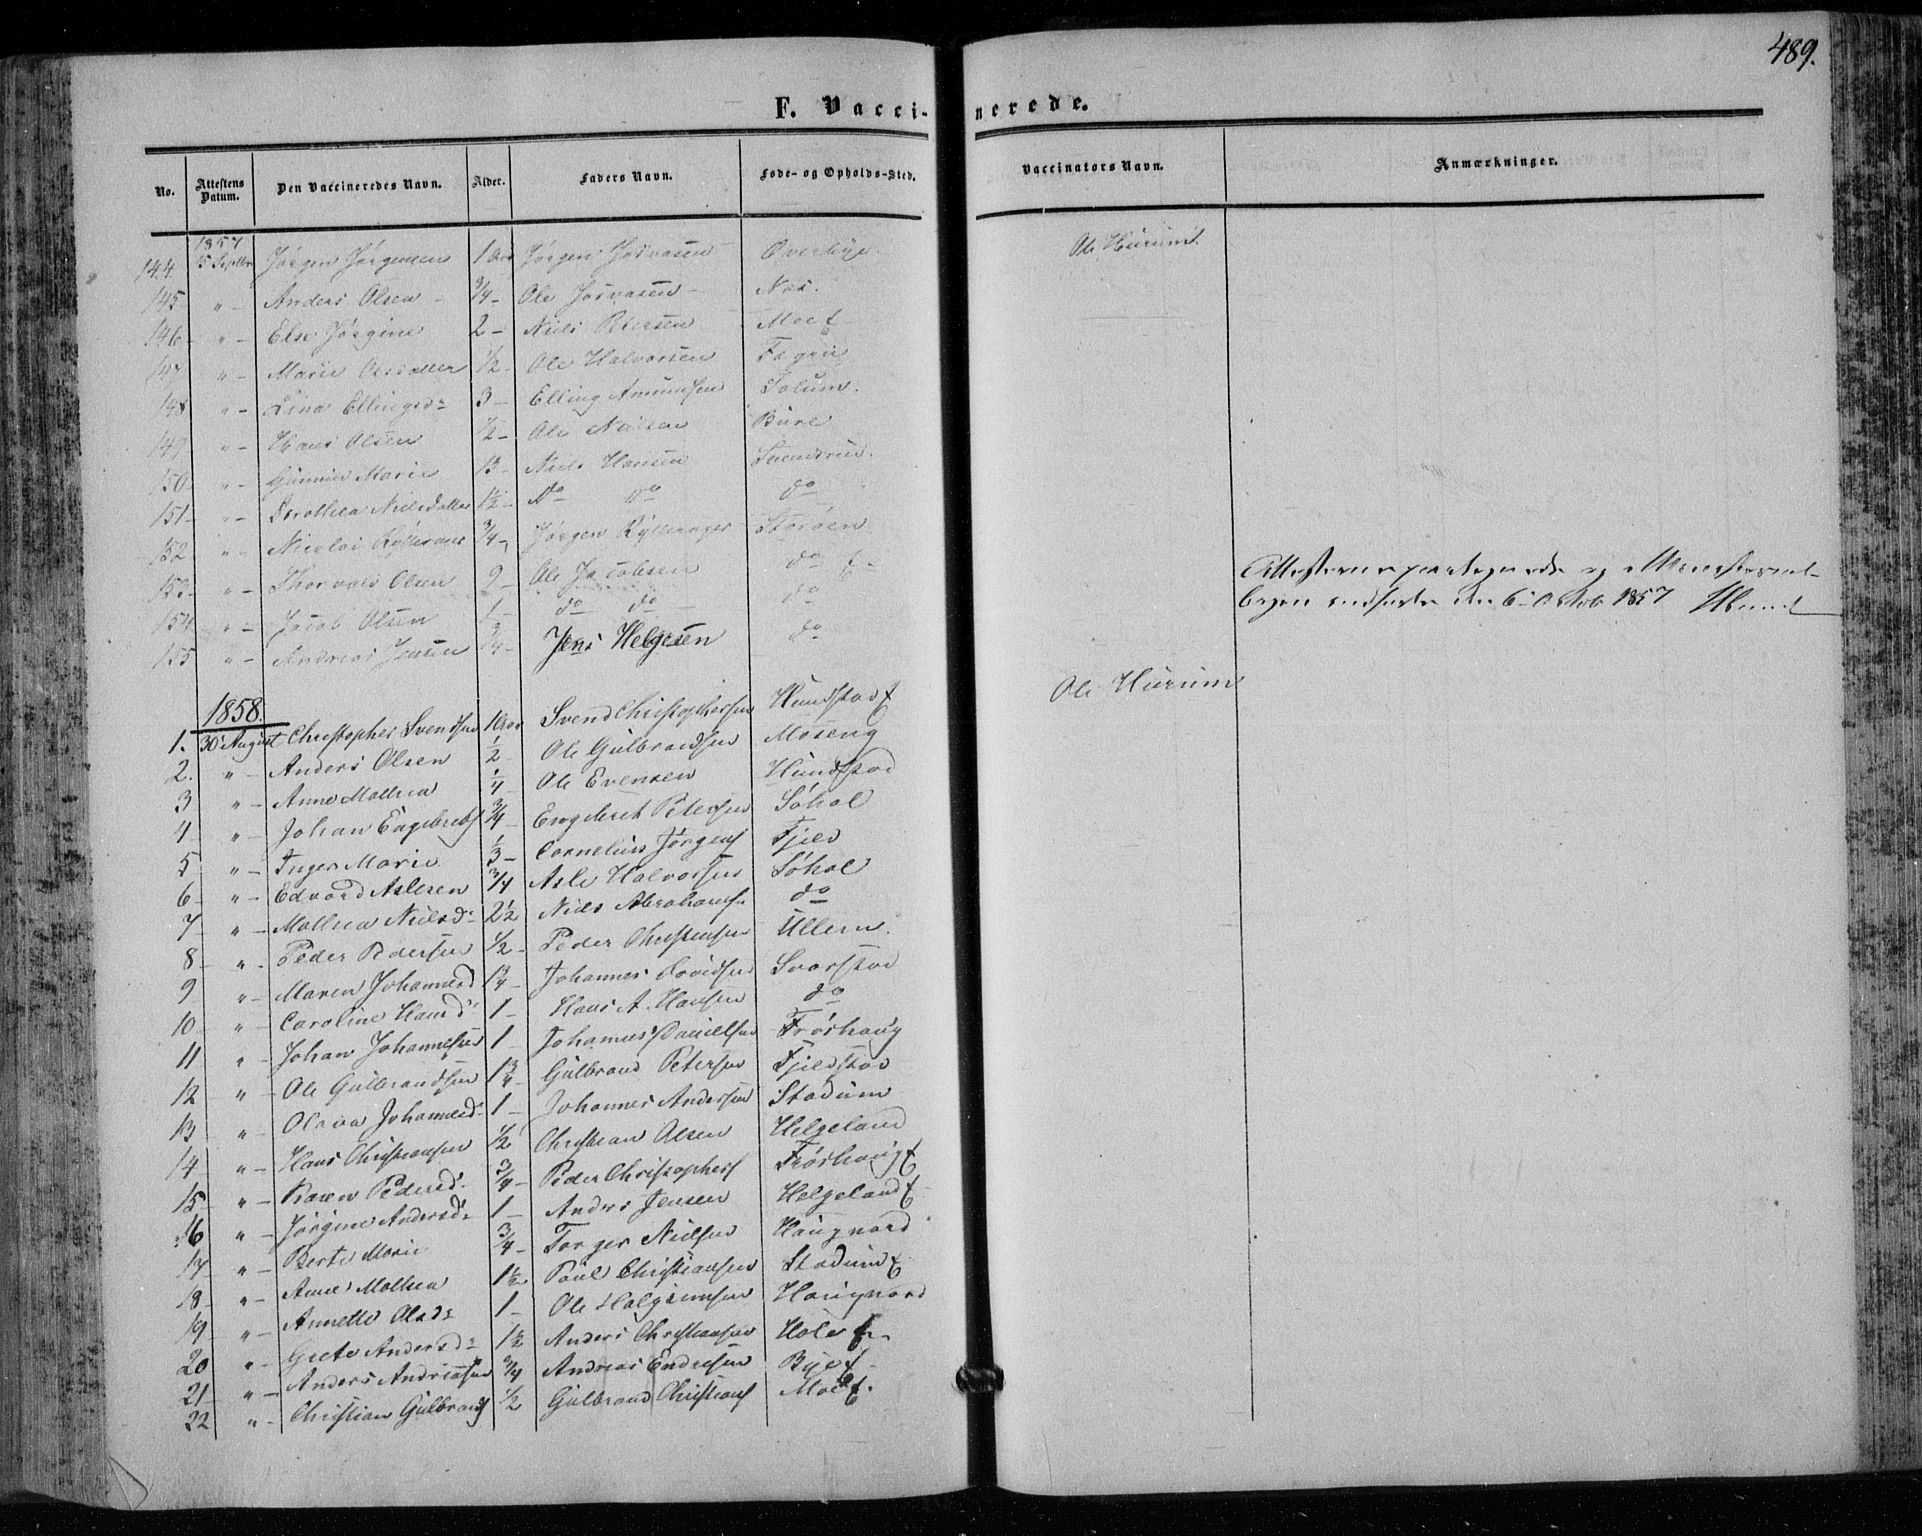 489.
F. Vaccinerede.
No. Attestens Datum. Den Vaccineredes Navn. Alder. Faders Navn. Føde- og Opholds-Sted. Vaccinators Navn. Anmærkninger.
1857
144 15 Septbr Jørgen Jørgensen 1 Aar Jørgen Josvasen Overbye. Ole Hurum
145 " - Anders Olsen - 3/4 - Ole Josvasen - Næs.
146 - " - Else Jørgine 2 - Niels Petersen Moe
147 " - Marie Olsdatter 1/2 - Ole Halvorsen
148 " - Lina Ellingsd: 3 - Elling Amundsen Solum.
149 " - Hans Olsen 1/2 - Ole Nielsen Bure
150 " - Marie 13 - Niels Hansen Svendsrud.
151 - " - Dorothea Nielsdatter 1½ - do do do
152 " - Nicolai 3/4 - Jørgen Storøen
153 - " - Thorvald Olsen 9 - Ole Jacobsen do
154 " - Jacob Olsen 1 - do do do
155 " - Andreas Jensen 3/4 - Jens Helgesen do
den 6 Octob 1857
1858.
1. 30 August Christopher Svendsen 1 Aar Svend Christophersen Hundstad Ole Hurum
2. " - Anders Olsen 1/2 Ole Gulbrandsen Moseng
3 " - Anne Mathea 1/4 - Ole Evensen Hundstad
4 " - Johan Engebrets 3/4 - Engebret Petersen Søhol
5 " - Inger Marie 1/3 - Cornelius Jørgens Fjeld
6 - " - Edvard Aslesen 3/4 Asle Halvorsen Søhol
7 - " - Mathea Nielsd: 2½ Niels Abrahams do
8 - " - Peder Pedersen 1/2 - Peder Christensen Ullern.
9 " - Maren Johannesd 1¾ - Johannes Davidsen Svarstad
10 - " - Caroline Hansd: 1 - Hans A. Hansen do
11 " Johan Johannesen 1 - Johannes Danielsen Frøshaug
12 " - Ole Gulbrandsen 1¾ - Gulbrand Petersen Fjeldstad
13 " - Olava Johannesd: 1 - Johannes Andersen Stadum
14 " - Hans Christiansen 1/2 Christian Olsen Helgeland
15 " - Karen Pedersd: 3/4 - Peder Christophers Frøshaug
16 " - Jørgine Andersd: 1 - Anders Jensen Helgeland
17 " - Berte Marie 3/4 - Torger Nielsen Haugnord
18 - " - Anne Mathea 1½ Paul Christiansen Stadum
19 " - Annette Olsd: 1 - Ole Halgrimsen Haugnord
20 " - Grete Andersd: 1½ Anders Christiansen Hole
21 - " - Anders Andreasen 3/4 Andreas Endresen Bye
22 " - Christian Gulbrands 1/2 Gulbrand Christians Moe